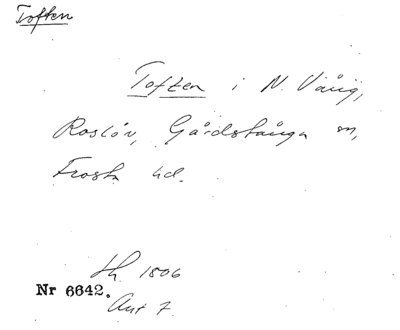 Toften
Toften i N. Vång,
Roslöv, Gårdstånga sn,
Frosta hd.
Sk. 1806
Nr 6642.
Akt 7.